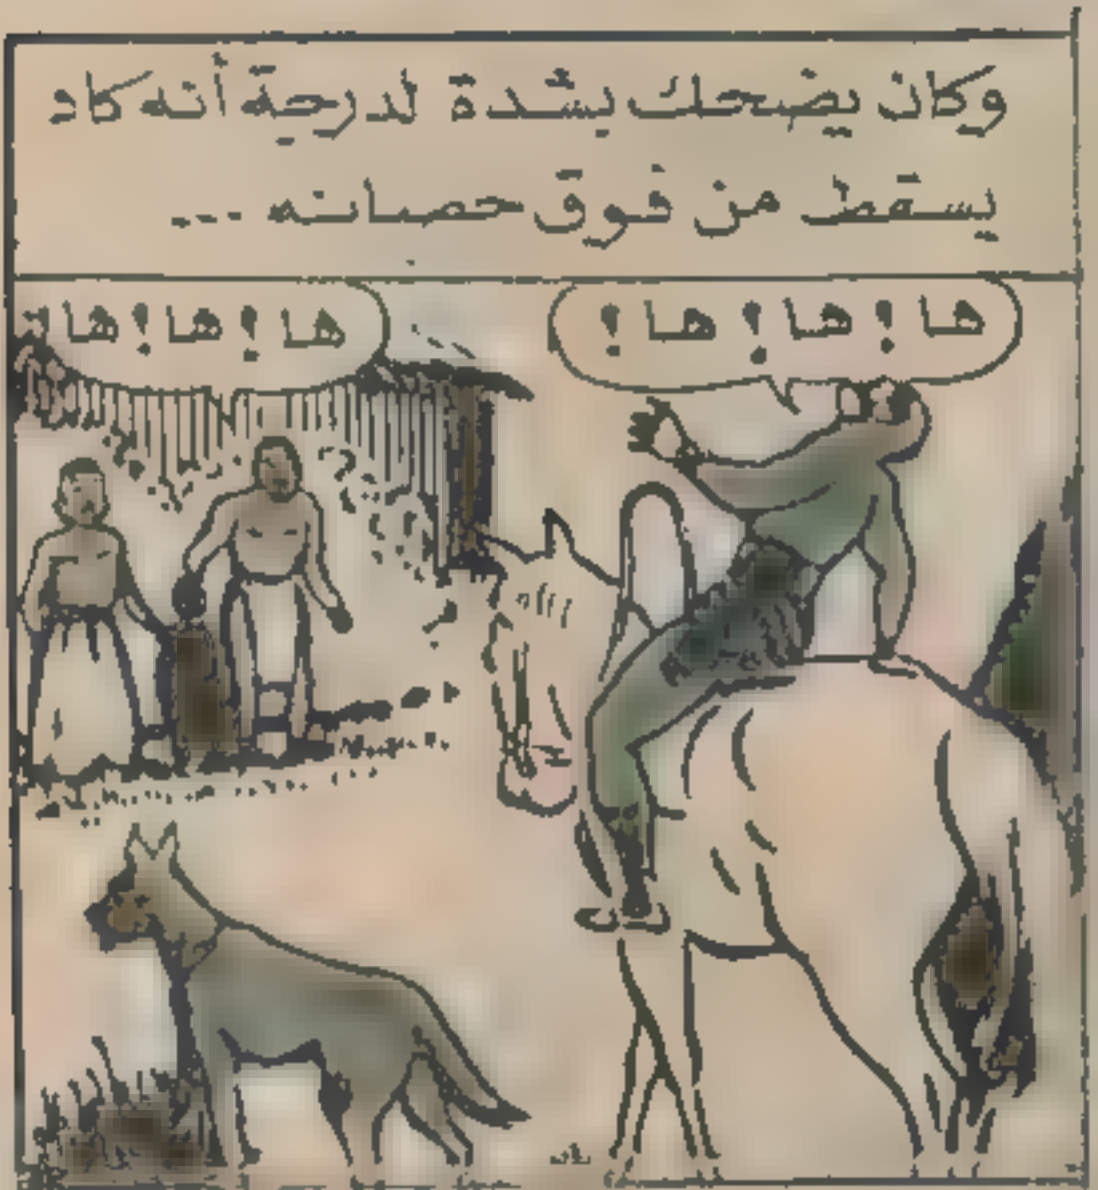 وكان يضحك بشدة لدرجة أنه كاد
يسقط من فوق حصانه ...
ها ! ها ! ها !
ها ! ها ! ها !